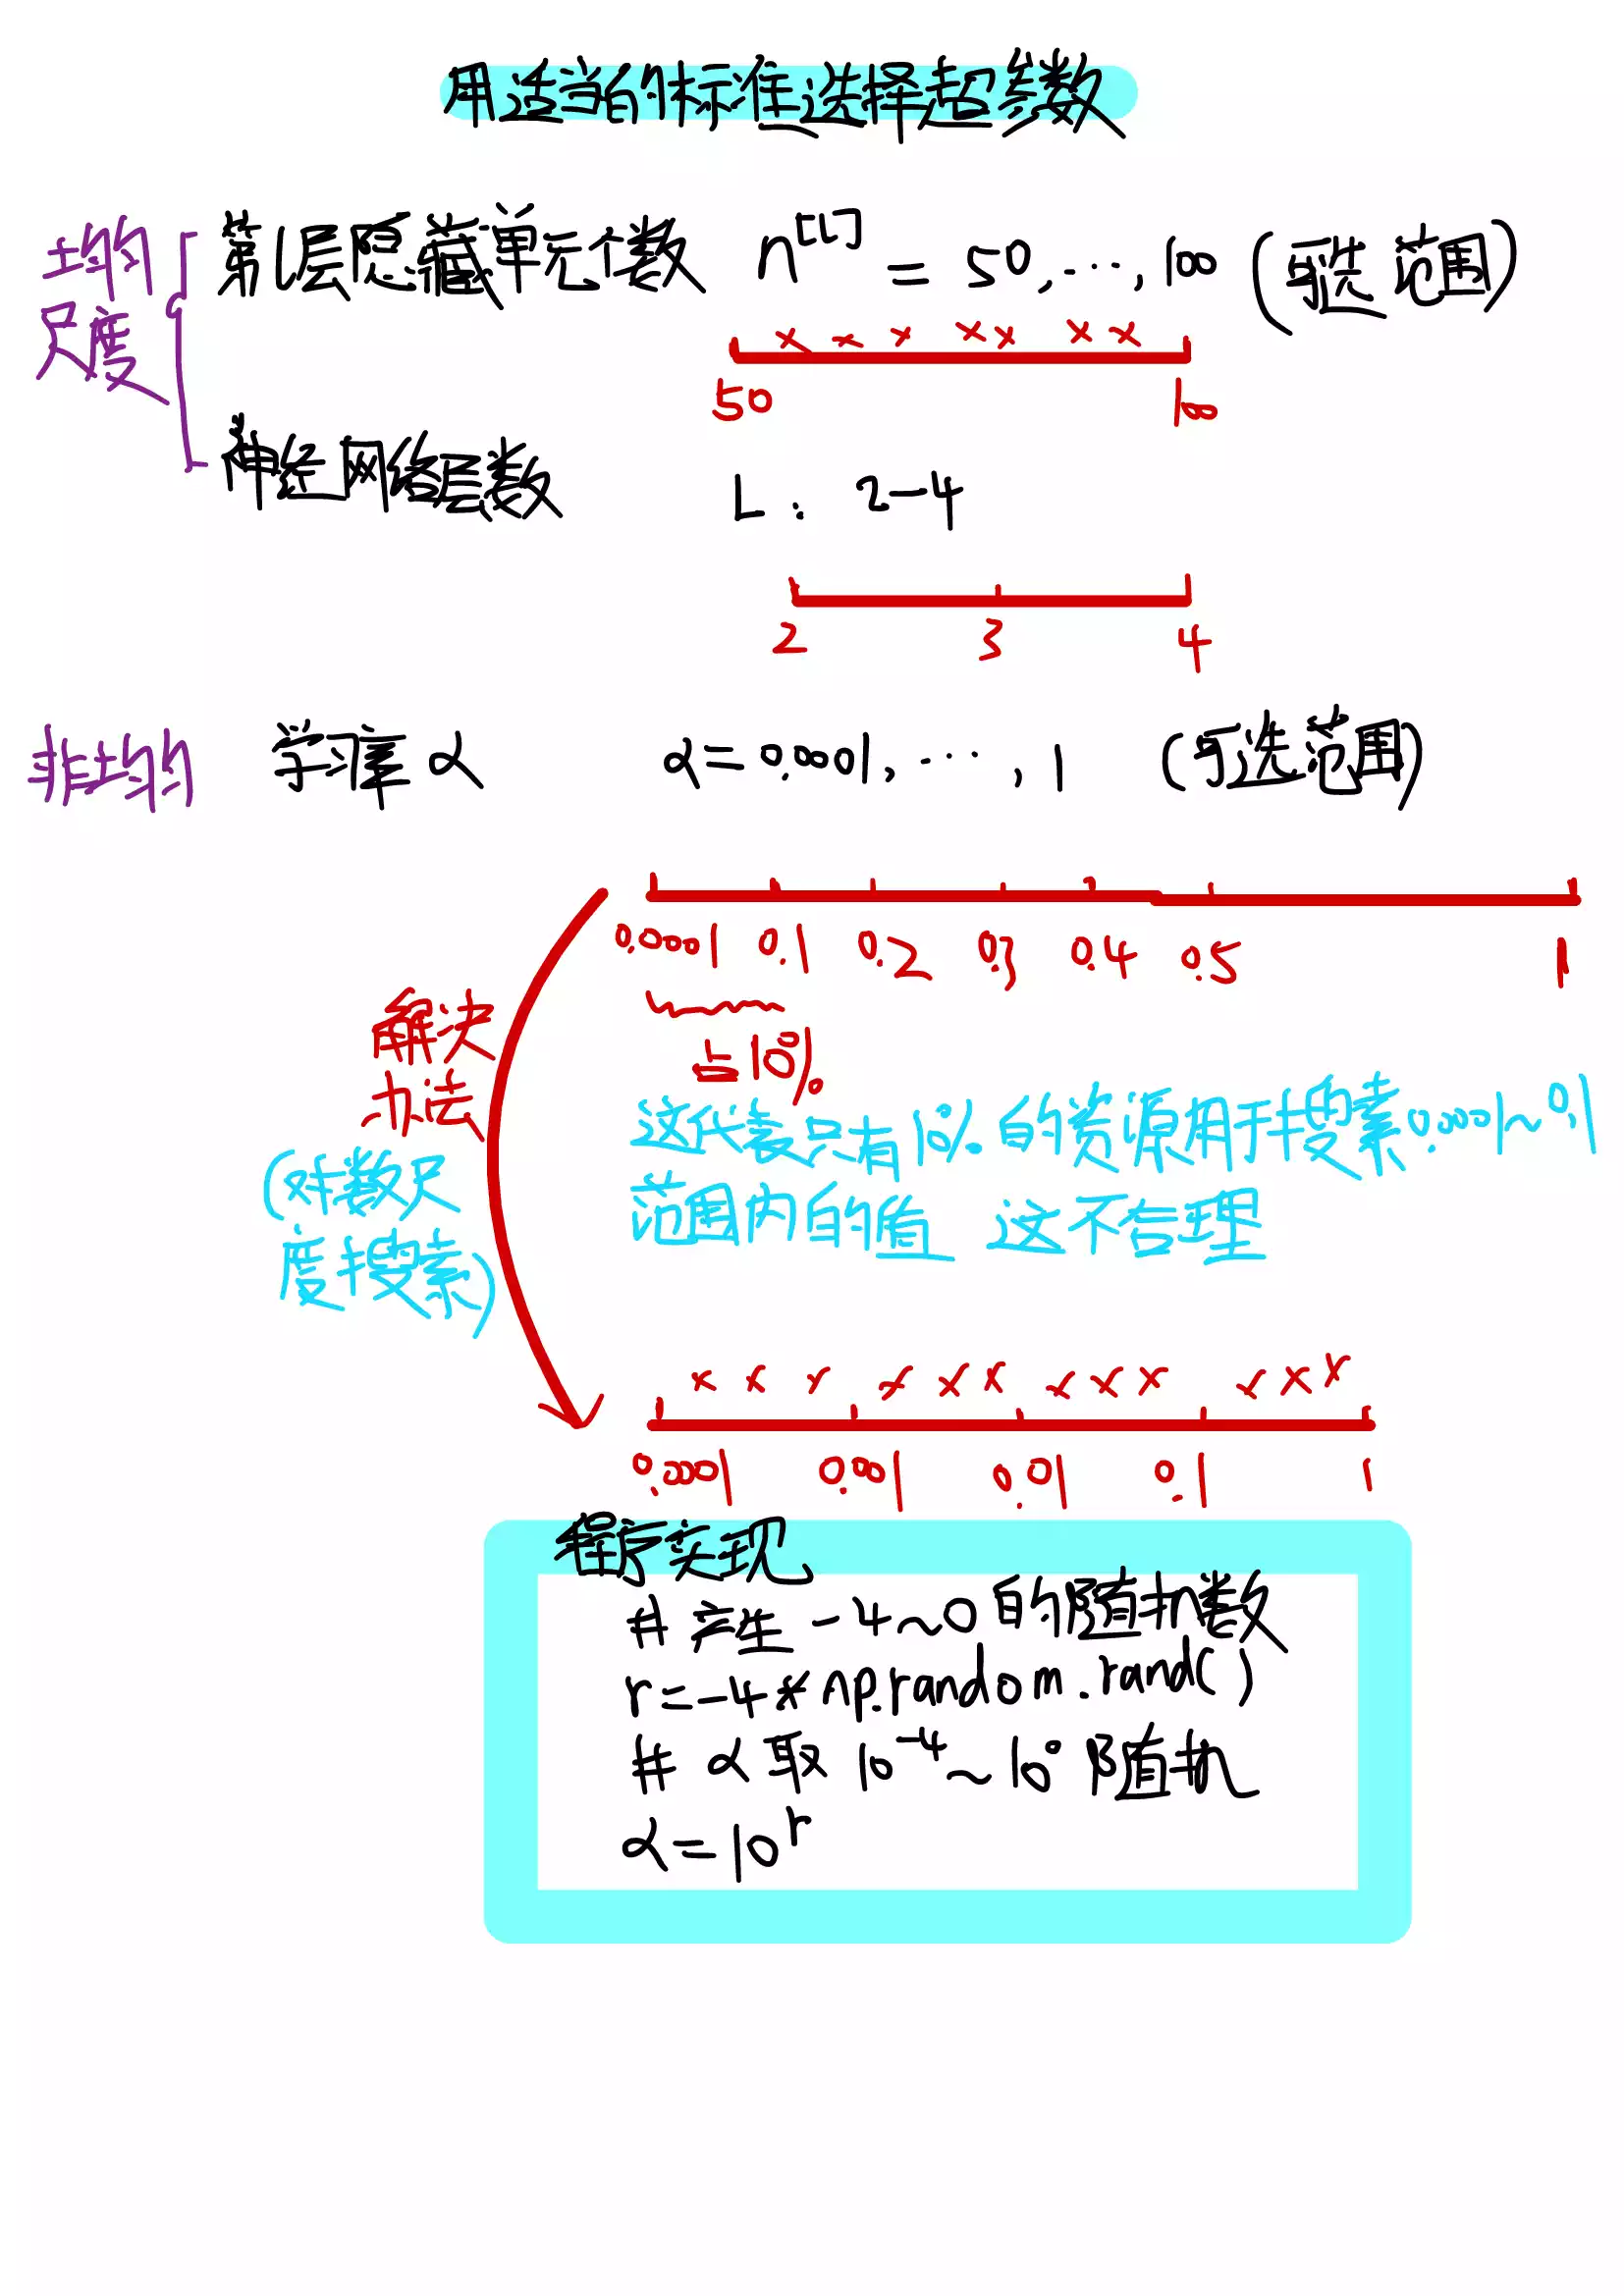 用适当的标准选择超参数
均匀
尺度
第l层隐藏单元个数 n^[l] = 50, ..., 100 (可选范围)
× × × ×× × ×
50 100
神经网络层数 L: 2-4
2 3 4
非均匀 学习率 α α=0.0001, ..., 1 (可选范围)
0.0001 0.1 0.2 0.3 0.4 0.5 1
占10%
解决
办法
(对数尺
度搜索)
这代表只有10%的资源用于搜索0.0001~0.1
范围内的值 这不合理
× × × × × × × × × × × ×
0.0001 0.001 0.01 0.1 1
程序实现
# 产生 -4~0 的随机数
r=-4*np.random.rand()
# α取 10^-4~10^0 随机
α=10^r